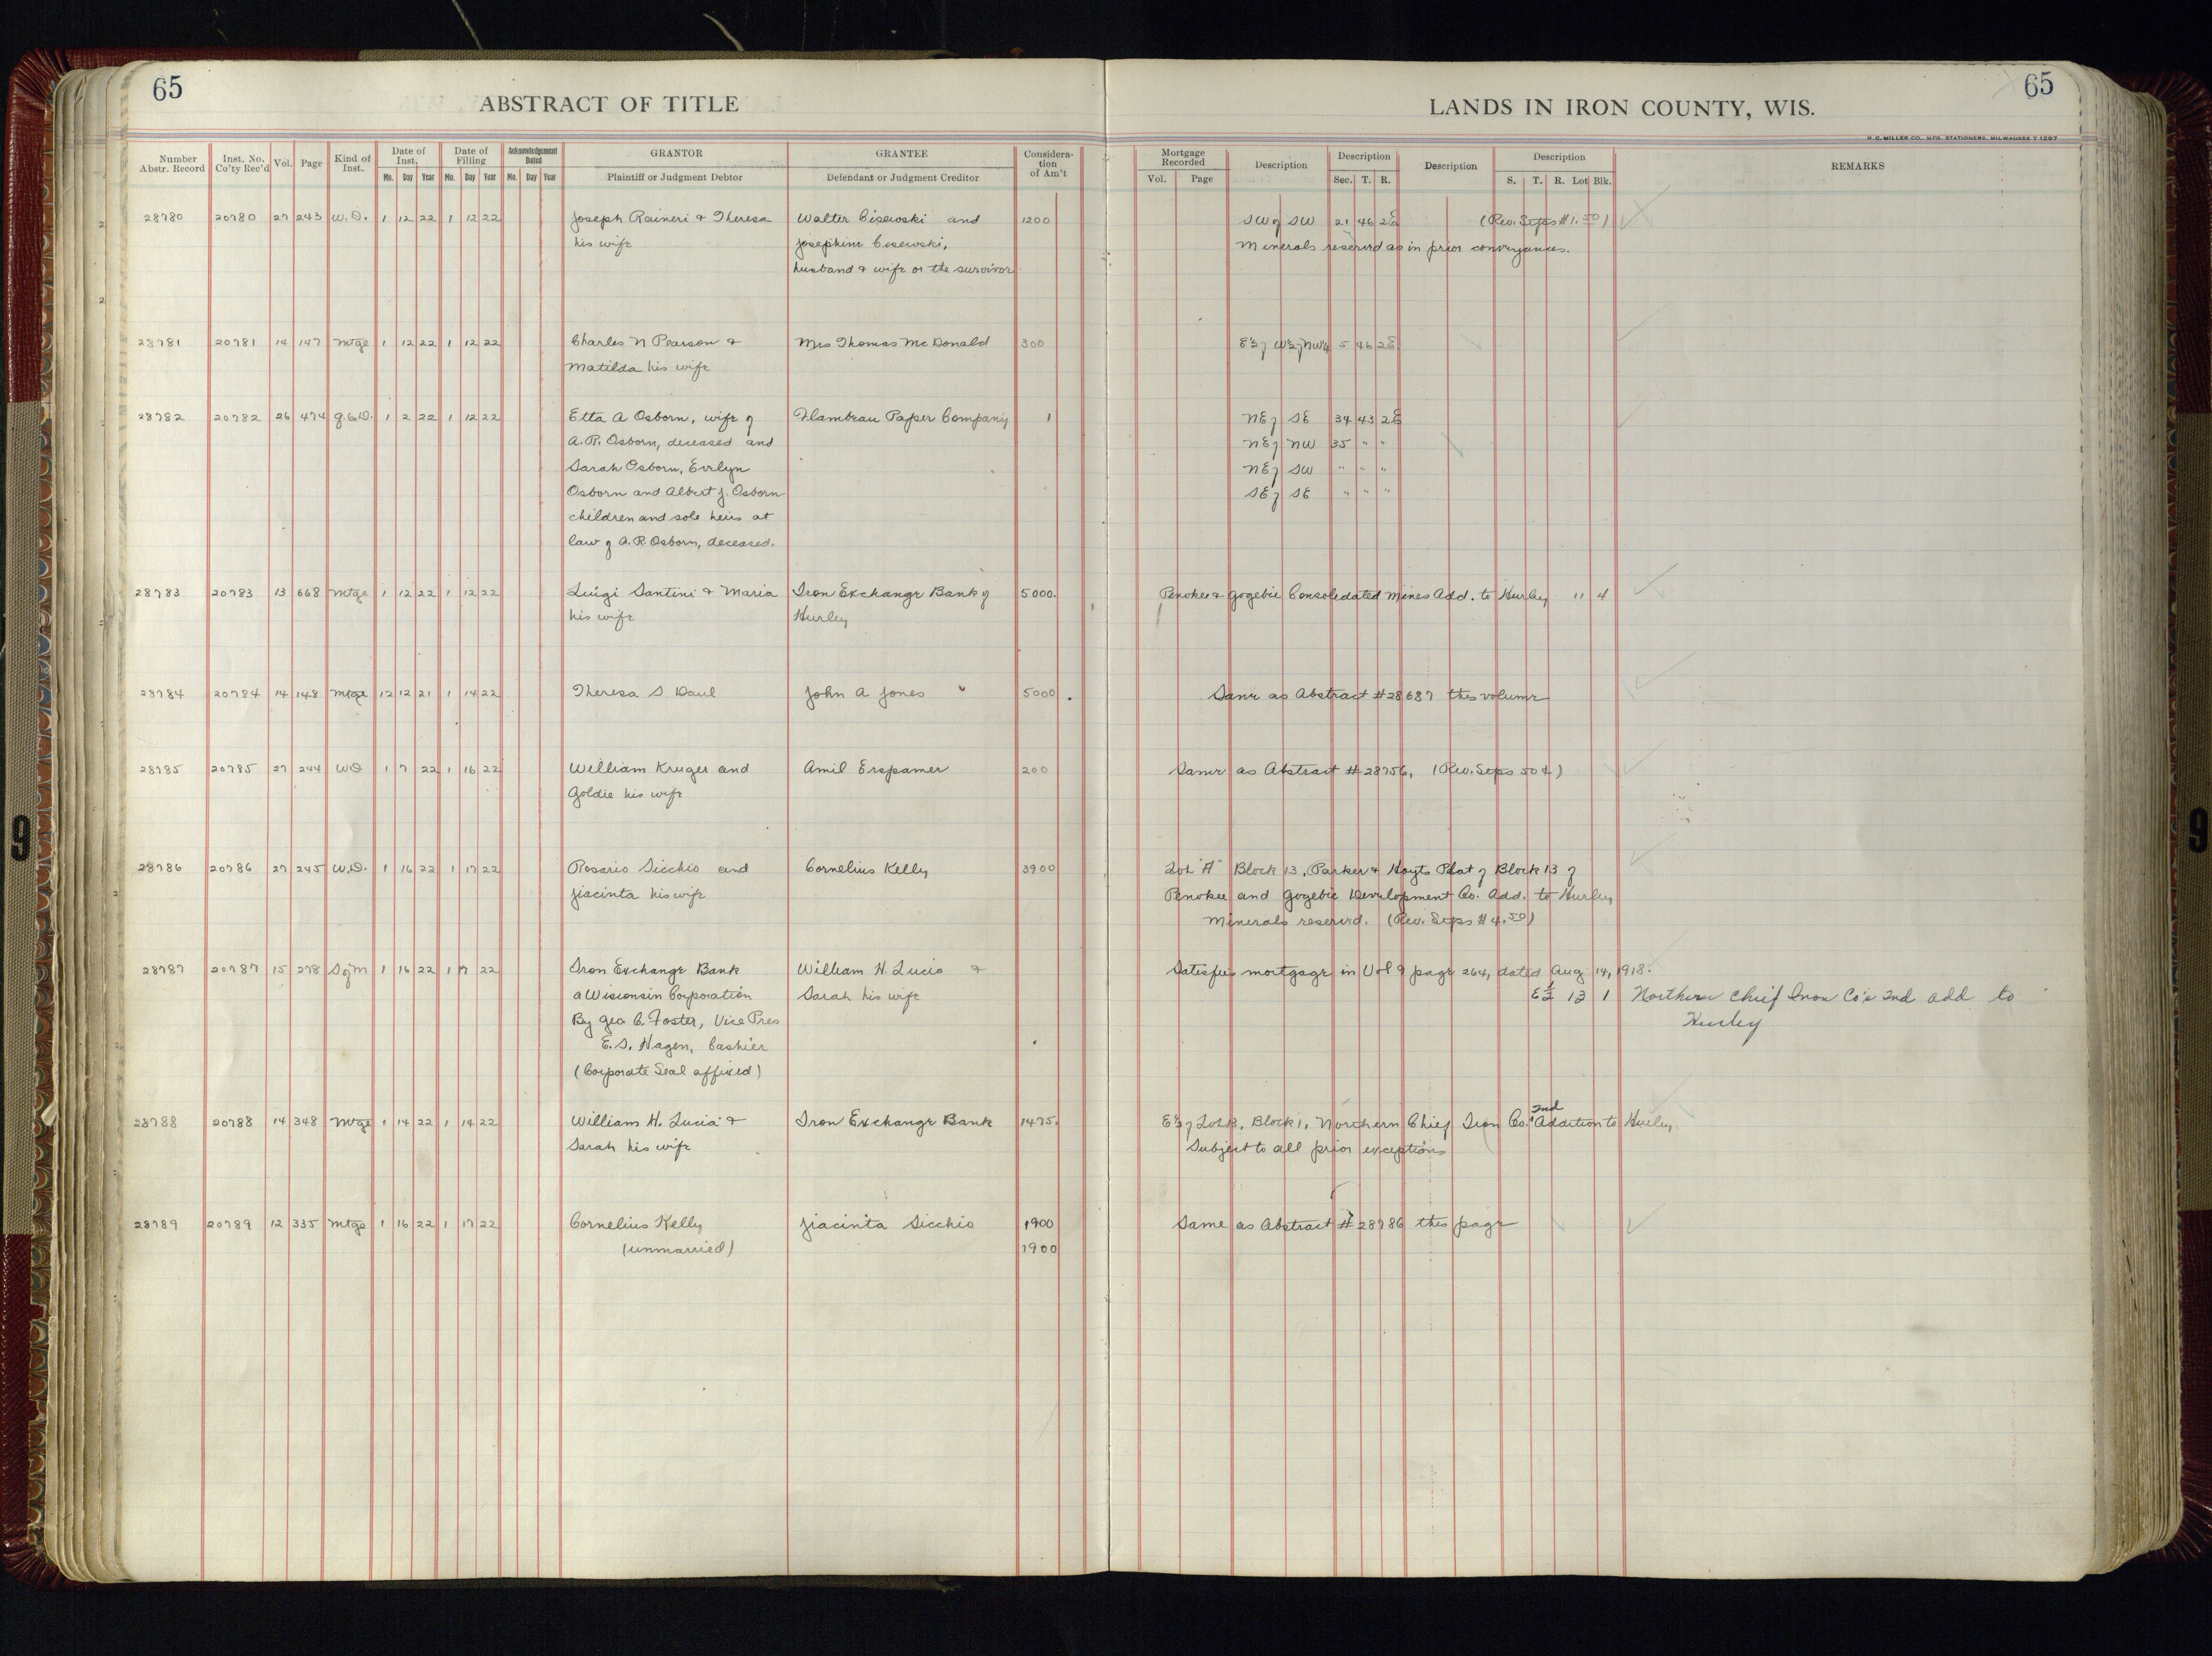 65
ABSTRACT OF TITLE
LANDS IN IRON COUNTY, WIS.
65
H. C. MILLER CO., MFG. STATIONERS, MILWAUKEE
Number Abstr. Record
Inst. No. Co'ty Rec'd
Vol.
Page
Kind of Inst.
Date of Inst.
Mo. Day Year
Date of Filling
Mo. Day Year
Acknowledgement Dated
Mo. Day Year
GRANTOR
Plaintiff or Judgment Debtor
GRANTEE
Defendant or Judgment Creditor
Considera-
tion
of Am't
Mortgage Recorded
Vol. Page
Description
Description
Sec. T. R.
Description
Description
S. T. R. Lot Blk.
REMARKS
28780 20780 27 243 W.D. 1 12 22 1 12 22 Joseph Raineri & Theresa Walter Cisewski and 1200 SW of SW 21 46 2E (Rev. Stps #1.50)
his wife Josephine Cisewski, Minerals reserved as in prior conveyances.
husband & wife or the survivor
28781 20781 14 147 Mtge 1 12 22 1 12 22 Charles N Pearson & Mrs Thomas McDonald 300 E½ of W½ of NW¼ 5 46 2E
Matilda his wife
28782 20782 26 474 Q.C.D. 1 2 22 1 12 22 Etta A Osborn, wife of Flambeau Paper Company 1 NE of SE 34 43 2E
A.R. Osborn, deceased and NE of NW 35 " "
Sarah Osborn, Evelyn NE of SW " " "
Osborn and Albert J. Osborn SE of SE " " "
children and sole heirs at
law of A.R. Osborn, deceased.
28783 20783 13 668 Mtge 1 12 22 1 12 22 Luigi Santini & Maria Iron Exchange Bank of 5000. Penokee & Gogebic Consolidated Mines Add. to Hurley 11 4
his wife Hurley
28784 20784 14 148 Mtge 12 12 21 1 14 22 Theresa S Daul John A Jones 5000 Same as Abstract #28687 this volume
28785 20785 27 244 WD 1 7 22 1 16 22 William Kruger and Amil Erspamer 200 Same as Abstract #28756, (Rev. Stps 50¢)
Goldie his wife
28786 20786 27 245 W.D. 1 16 22 1 17 22 Rosario Sicchio and Cornelius Kelly 3900 Lot "A" Block 13, Parker & Hoyts Plat of Block 13 of
Jiacinta his wife Penokee and Gogebic Development Co. Add. to Hurley
Minerals reserved. (Rev. Stps #4.50)
28787 20787 15 278 S of M 1 16 22 1 17 22 Iron Exchange Bank William H. Lucia & Satisfies mortgage in Vol 9 page 264, dated Aug 14, 1918.
a Wisconsin Corporation Sarah his wife E½ 13 1 Northern Chief Iron Co's 2nd add to
By Geo C. Foster, Vice Pres Hurley
E. S. Hagen, Cashier
(Corporate Seal affixed)
28788 20788 14 348 Mtge 1 14 22 1 14 22 William H. Lucia & Iron Exchange Bank 1475. E½ of Lot 13, Block 1, Northern Chief Iron Co.'s 2nd Addition to Hurley.
Sarah his wife Subject to all prior exceptions
28789 20789 12 335 Mtge 1 16 22 1 17 22 Cornelius Kelly Jiacinta Sicchio 1900 Same as Abstract #28786 this page
(unmarried) 1900
9
9